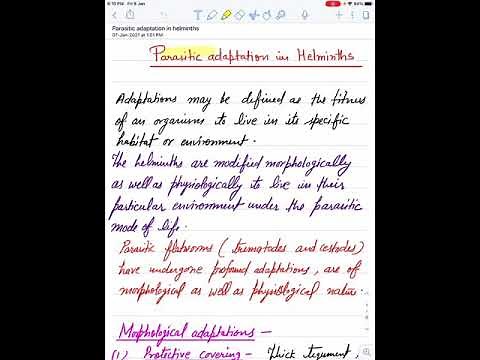 8:10 PM Fri 8 Jan
84%
Parasitic adaptation in helminths
07-Jan-2021 at 1:01 PM
Parasitic adaptation in Helminths
Adaptations may be defined as the fitness
of an organisms to live in its specific
habitat or environment.
The helminths are modified morphologically
as well as physiologically to live in their
particular environment under the parasitic
mode of life.
Parasitic flatworms (trematodes and cestodes)
have undergone profound adaptations, are of
morphological as well as physiological nature.
Morphological adaptations -
(1) Protective covering - Thick tegument,